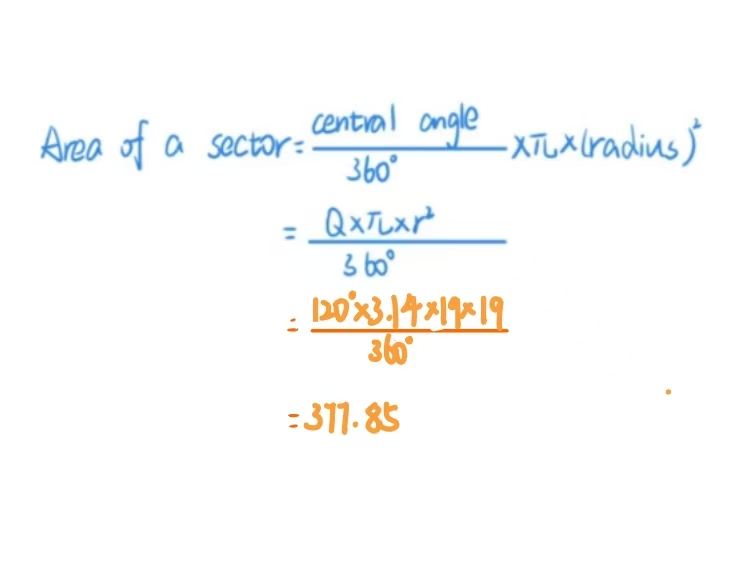 Area of a sector = central angle / 360° × π × (radius)²
= Q×π×r² / 360°
= 120°×3.14×19×19 / 360°
= 377.85